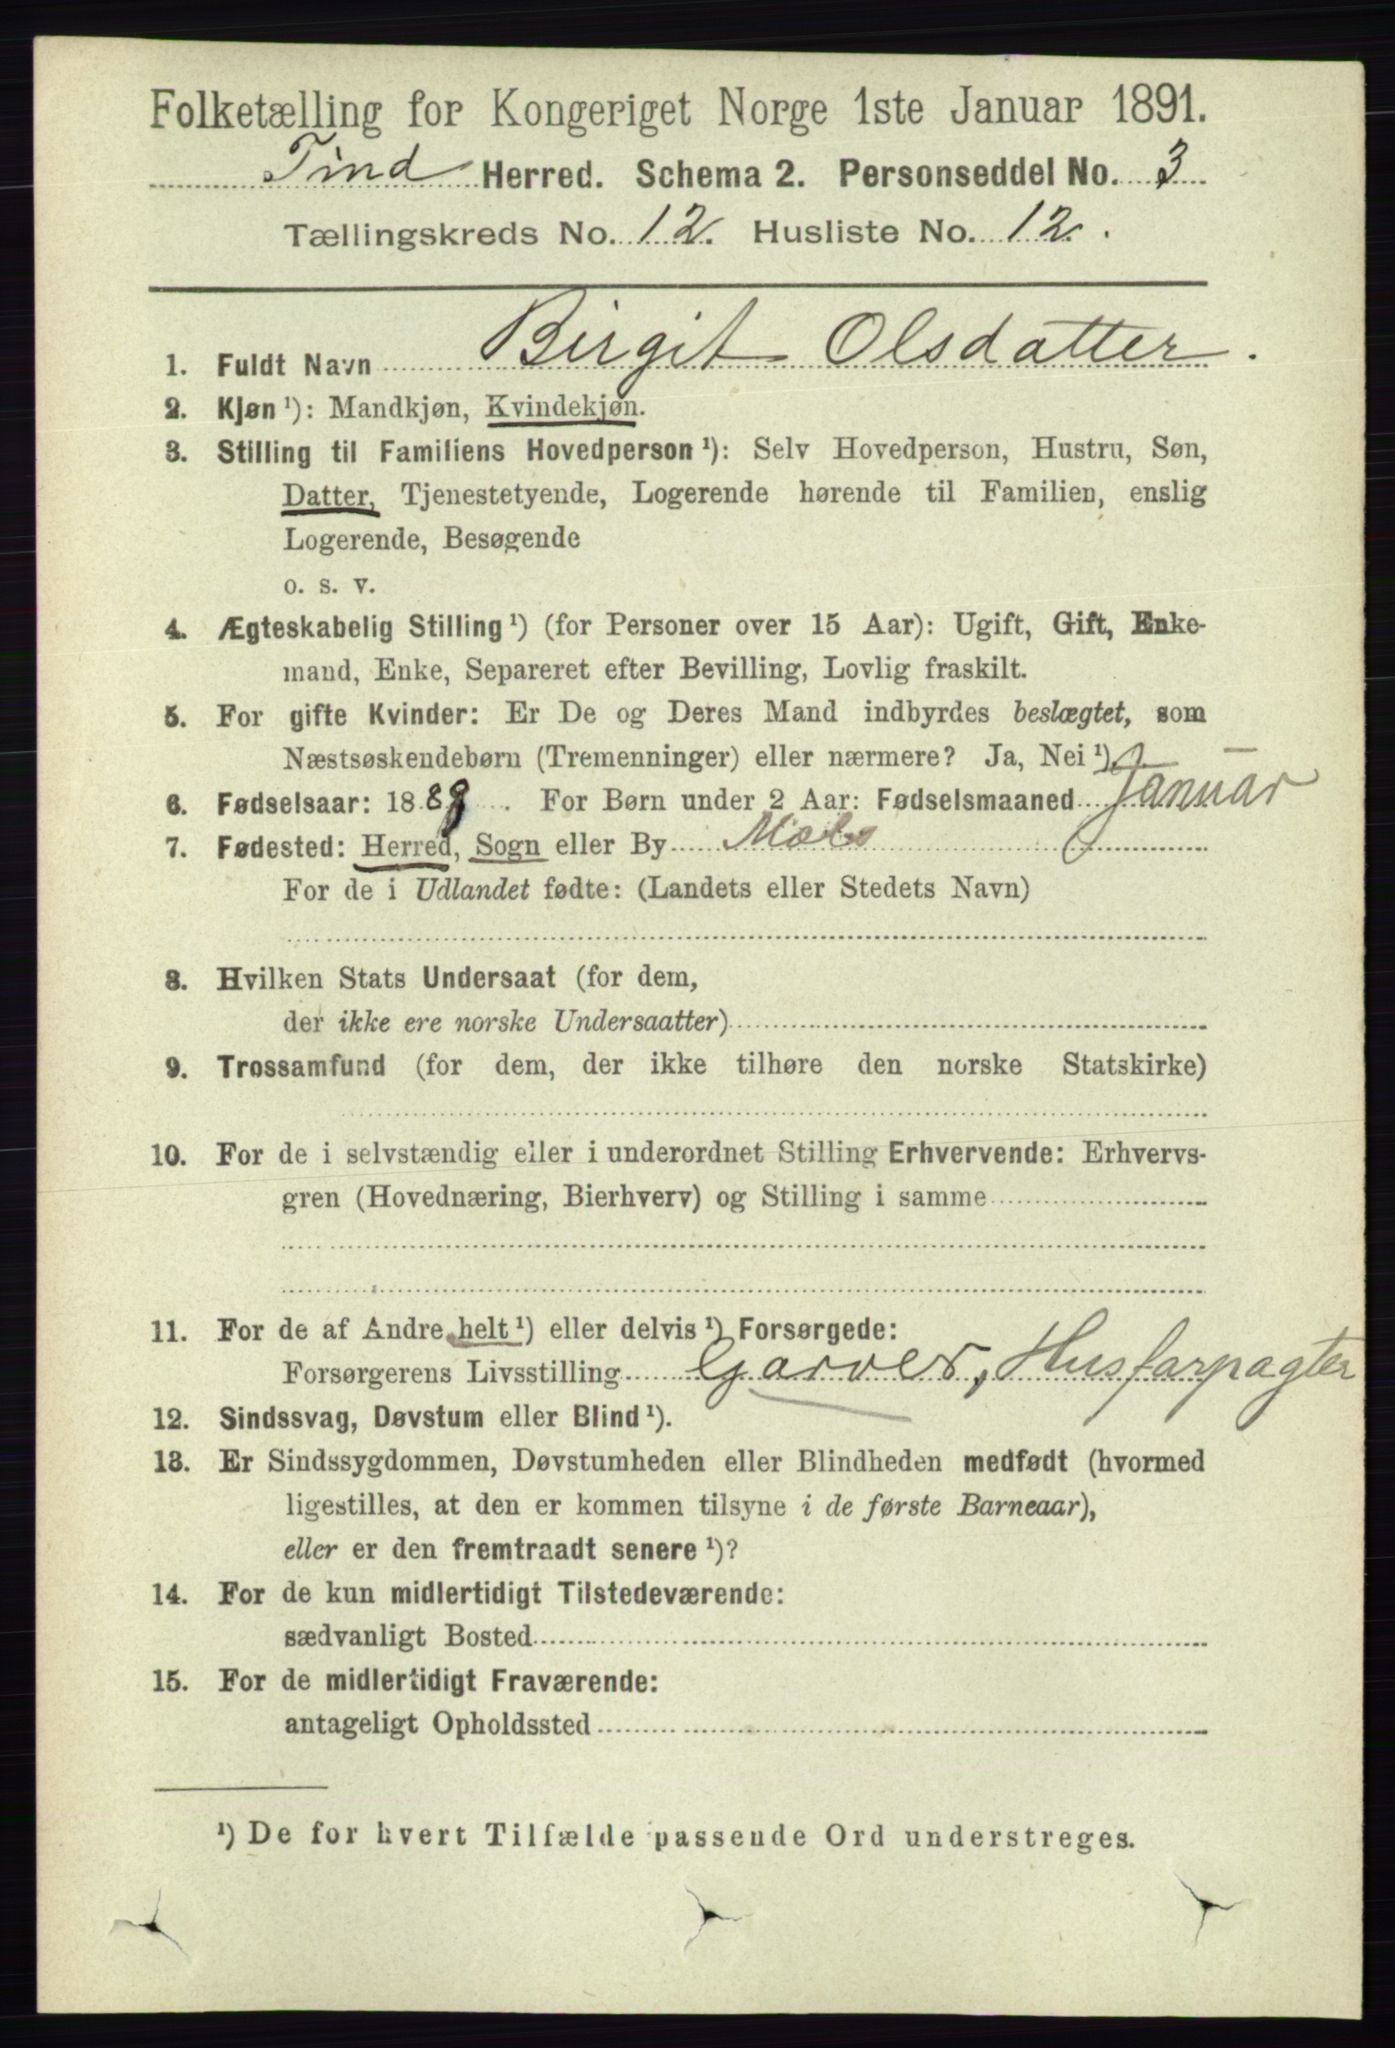 Folketælling for Kongeriget Norge 1ste Januar 1891.
Tind Herred. Schema 2. Personseddel No. 3
Tællingskreds No. 12. Husliste No. 12.
1. Fuldt Navn Birgit Olsdatter.
2. Kjøn ¹): Mandkjøn, Kvindekjøn.
3. Stilling til Familiens Hovedperson ¹): Selv Hovedperson, Hustru, Søn,
Datter, Tjenestetyende, Logerende hørende til Familien, enslig
Logerende, Besøgende
o. s. v.
4. Ægteskabelig Stilling ¹) (for Personer over 15 Aar): Ugift, Gift, Enke-
mand, Enke, Separeret efter Bevilling, Lovlig fraskilt.
5. For gifte Kvinder: Er De og Deres Mand indbyrdes beslægtet, som
Næstsøskendebørn (Tremenninger) eller nærmere? Ja, Nei ¹)
6. Fødselsaar: 1889. For Børn under 2 Aar: Fødselsmaaned Januar
7. Fødested: Herred, Sogn eller By
For de i Udlandet fødte: (Landets eller Stedets Navn)
8. Hvilken Stats Undersaat (for dem,
der ikke ere norske Undersaatter)
9. Trossamfund (for dem, der ikke tilhøre den norske Statskirke)
10. For de i selvstændig eller i underordnet Stilling Erhvervende: Erhvervs-
gren (Hovednæring, Bierhverv) og Stilling i samme
11. For de af Andre helt ¹) eller delvis ¹) Forsørgede:
Forsørgerens Livsstilling Garver, Husfarpagter
12. Sindssvag, Døvstum eller Blind ¹).
13. Er Sindssygdommen, Døvstumheden eller Blindheden medfødt (hvormed
ligestilles, at den er kommen tilsyne i de første Barneaar),
eller er den fremtraadt senere ¹)?
14. For de kun midlertidigt Tilstedeværende:
sædvanligt Bosted
15. For de midlertidigt Fraværende:
antageligt Opholdssted
¹) De for hvert Tilfælde passende Ord understreges.